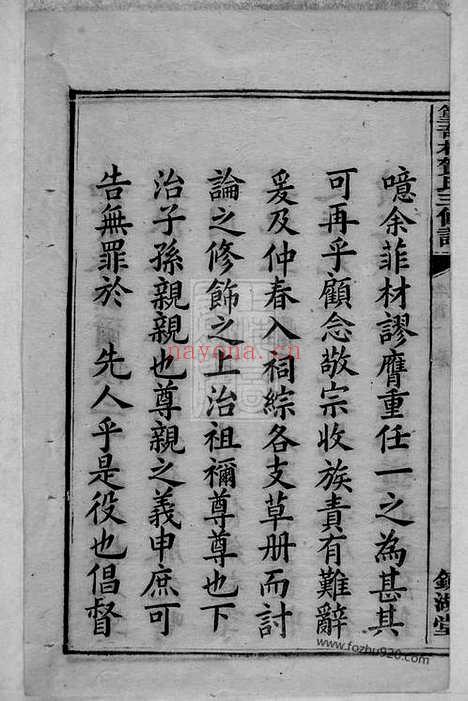 噫余菲材謬膺重任一之為甚其
可再乎顧念敬宗收族責有難辭
爰及仲春入祠綜各支草册而討
論之修飾之上治祖禰尊尊也下
治子孫親親也尊親之義申庶可
告無罪於 先人乎是役也倡督
氏三修譜
湖堂
nayona.cn
www.fozhu920.com